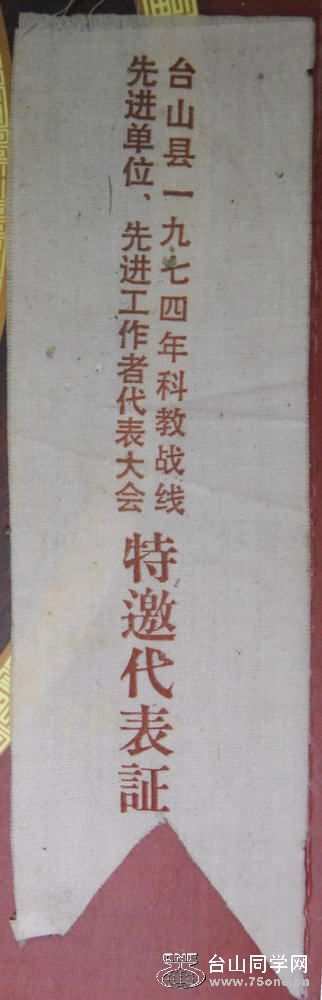 台山县一九七四年科教战线
先进单位、先进工作者代表大会
特邀代表証
台山同学网
www.75one.cn